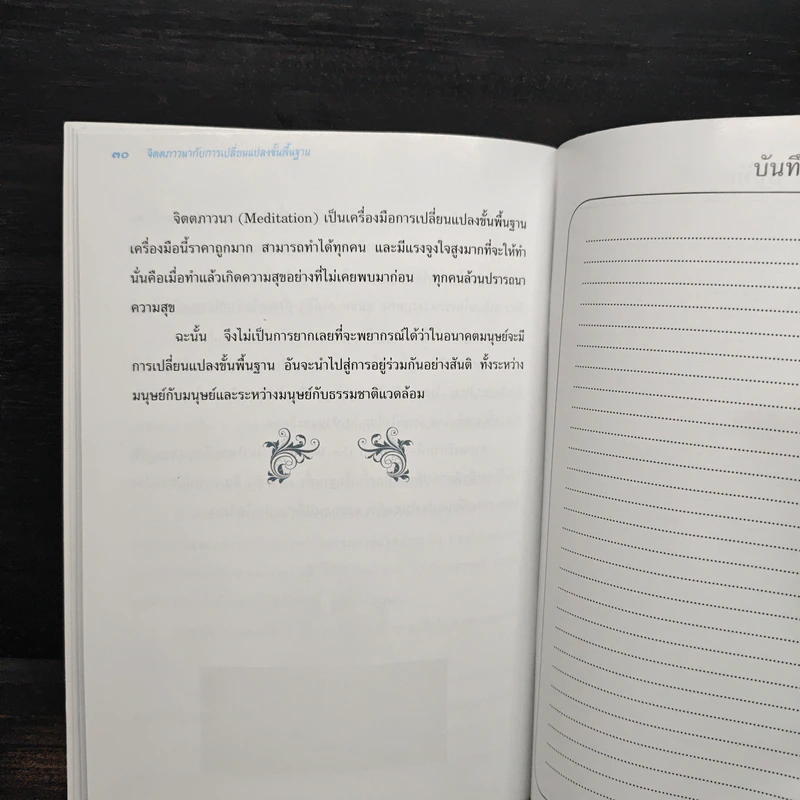 ๓๐ จิตตภาวนากับการเปลี่ยนแปลงขั้นพื้นฐาน
จิตตภาวนา (Meditation) เป็นเครื่องมือการเปลี่ยนแปลงขั้นพื้นฐาน
เครื่องมือนี้ราคาถูกมาก สามารถทำได้ทุกคน และมีแรงจูงใจสูงมากที่จะให้ทำ
นั่นคือเมื่อทำแล้วเกิดความสุขอย่างที่ไม่เคยพบมาก่อน ทุกคนล้วนปรารถนา
ความสุข
ฉะนั้น จึงไม่เป็นการยากเลยที่จะพยากรณ์ได้ว่าในอนาคตมนุษย์จะมี
การเปลี่ยนแปลงขั้นพื้นฐาน อันจะนำไปสู่การอยู่ร่วมกันอย่างสันติ ทั้งระหว่าง
มนุษย์กับมนุษย์และระหว่างมนุษย์กับธรรมชาติแวดล้อม
บันทึ